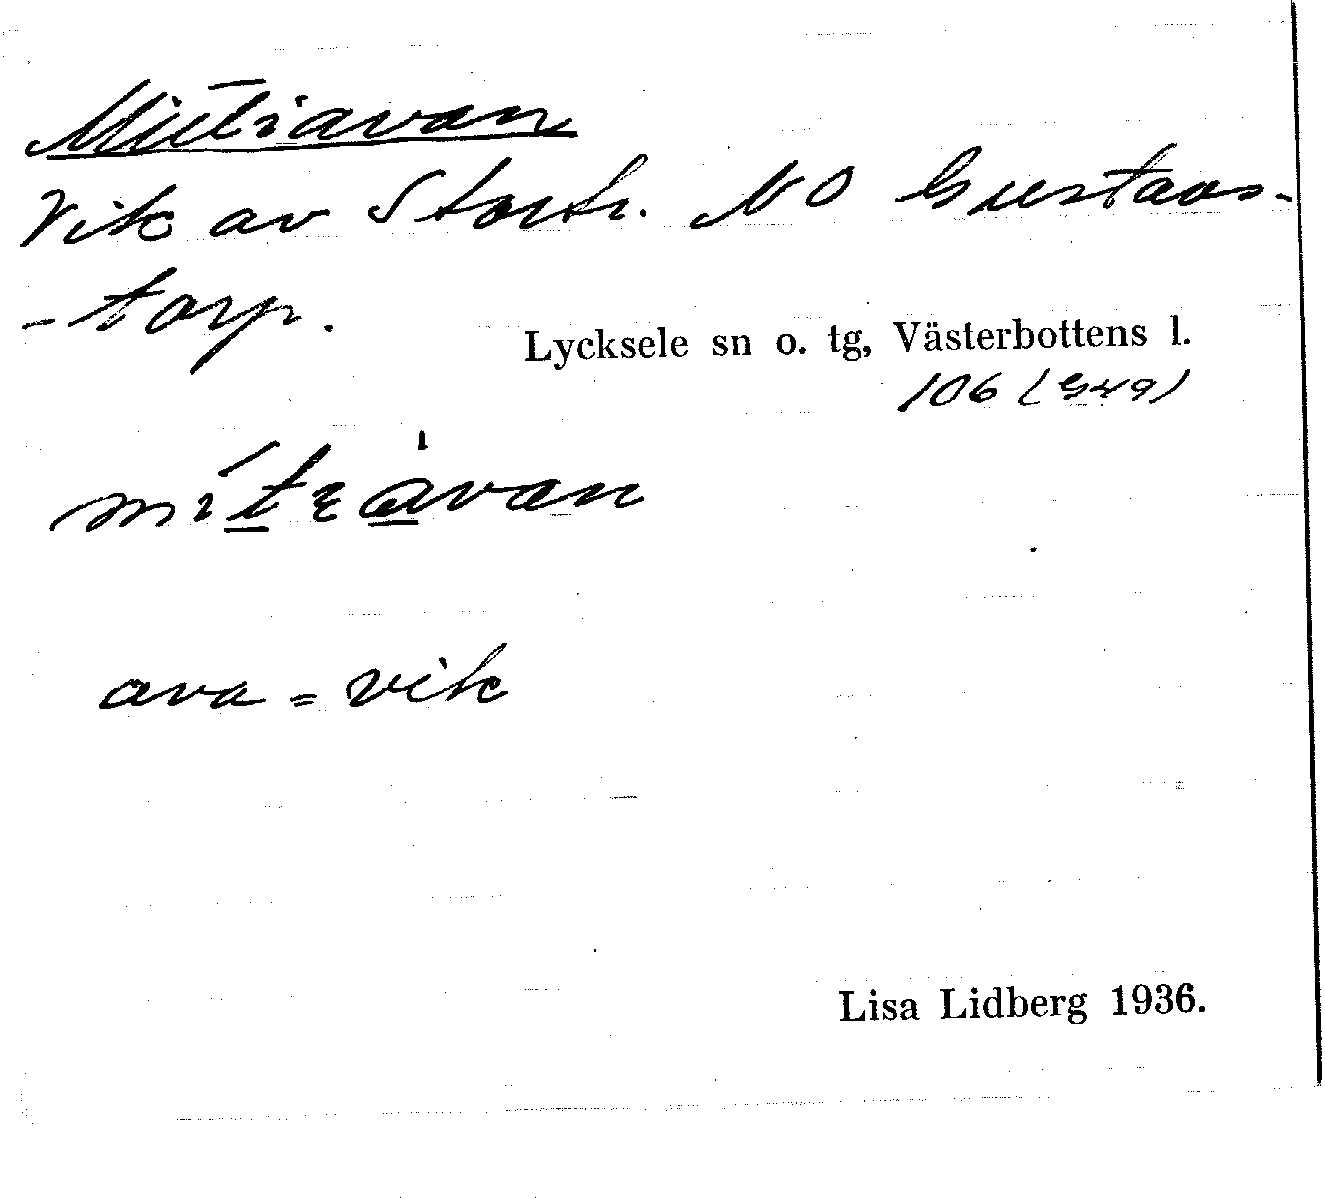 Mittiavan
Vik av Stortr. NO Gustavs-
-torp.
Lycksele sn o. tg, Västerbottens l.
106 (G49)
ava = vik
Lisa Lidberg 1936.